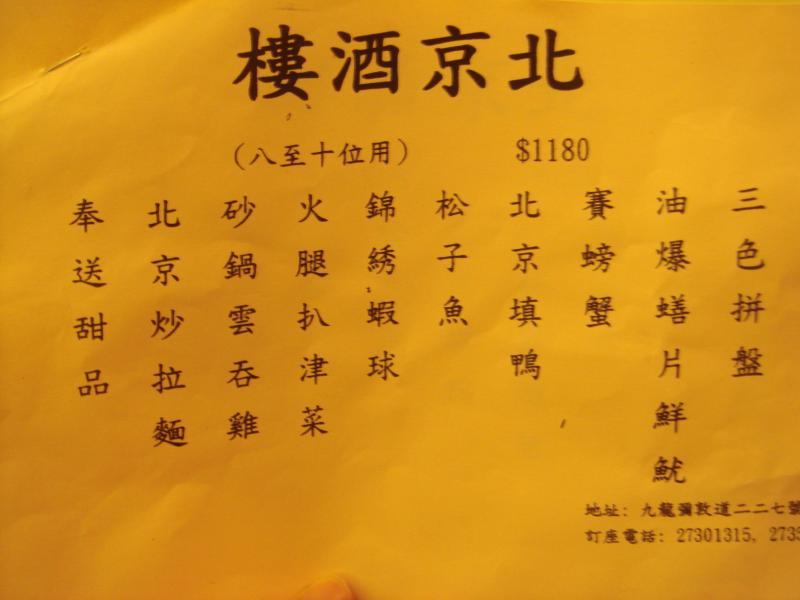 北京酒樓
（八至十位用） $1180
三色拼盤
油爆蟮片鮮魷
賽螃蟹
北京填鴨
松子魚
錦綉蝦球
火腿扒津菜
砂鍋雲吞雞
北京炒拉麵
奉送甜品
地址: 九龍彌敦道二二七號
訂座電話: 27301315, 2735